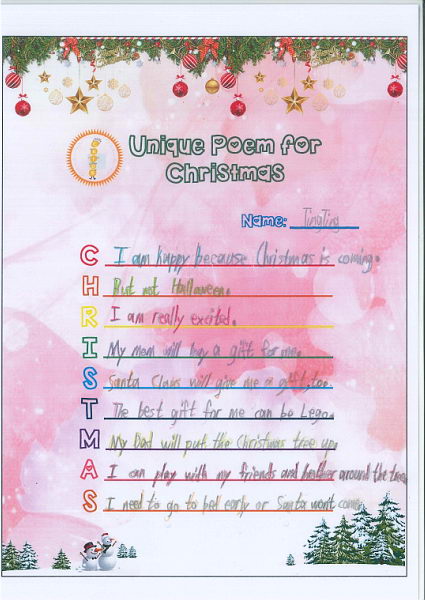 Unique Poem for
Christmas
Name: TingTing
C I am happy because Christmas is coming.
H But not Halloween.
R I am really excited.
I My mom will buy a gift for me.
S Santa Claus will give me a gift too.
T The best gift for me can be Lego.
M My Dad will put the Christmas tree up.
A I can play with my friends and brother around the tree.
S I need to go to bed early or Santa wont come.